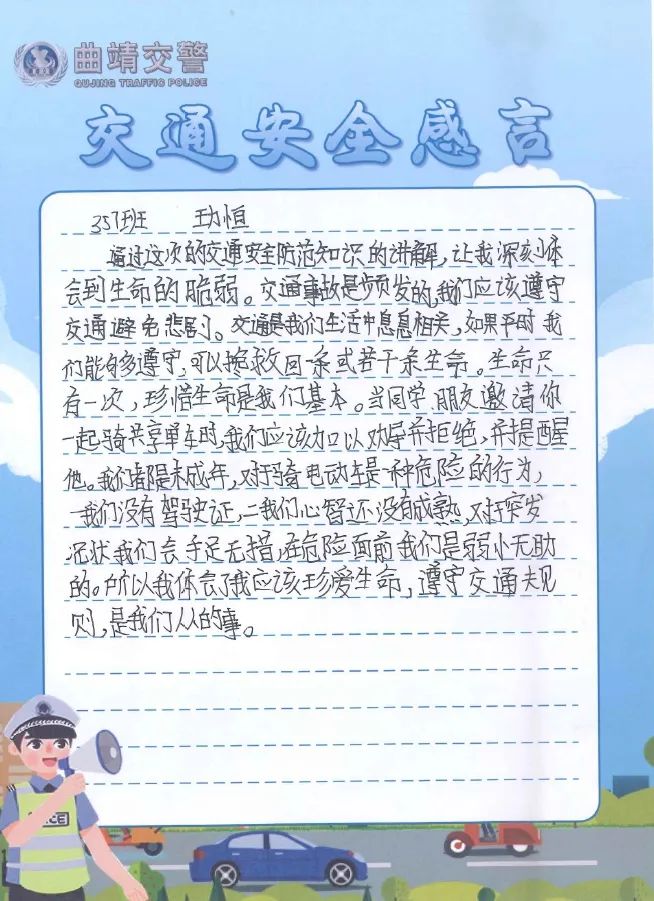 曲靖交警
QUJING TRAFFIC POLICE
交通安全感言
357班 王劢恒
通过这次的交通安全防范知识的讲解，让我深刻体
会到生命的脆弱。交通事故是频发的，我们应该遵守
交通避免悲剧。交通是我们生活中息息相关，如果平时我
们能够遵守，可以挽救回一条或若干条生命。生命只
有一次，珍惜生命是我们基本。当同学，朋友邀请你
一起骑共享单车时，我们应该加以劝导并拒绝，并提醒
他。我们都是未成年，对于骑电动车是一种危险的行为，
一我们没有驾驶证，二我们心智还没有成熟，对于突发
况状我们会手足无措，在危险面前我们是弱小无助
的。所以我体会了我应该珍爱生命，遵守交通规
则，是我们人人的事。
ICE